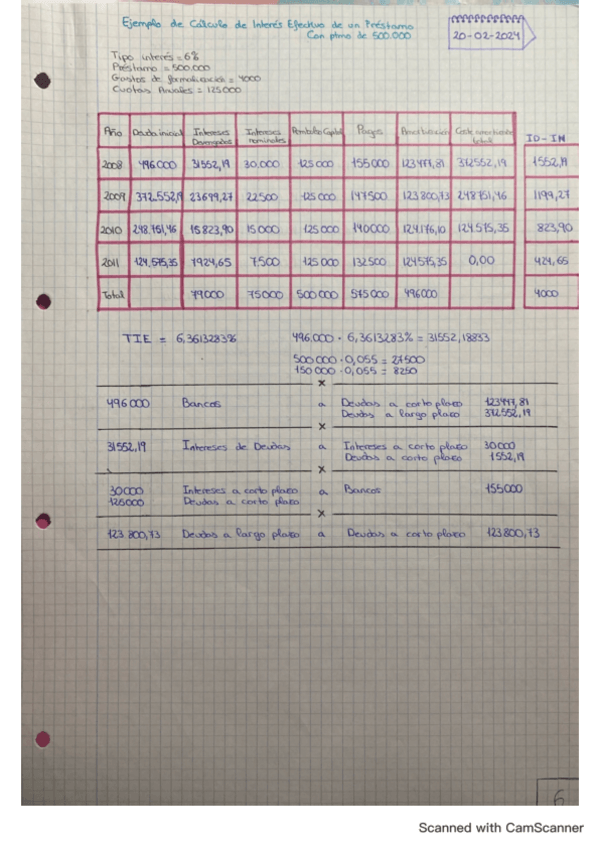 Ejemplo de Cálculo de Interés Efectivo de un Préstamo
Con ptmo de 500.000
20-02-2024
Tipo interés = 6%
Préstamo = 500.000
Gastos de formalización = 4000
Cuotas Anuales = 125000
Año Deuda inicial Intereses Devengados Intereses nominales Reembolso Capital Pagos Amortización Coste amortizado ID-IN
2008 496000 31552,19 30.000 125000 155000 123447,81 372552,19 1552,19
2009 372.552,19 23699,27 22500 125000 147500 123800,73 248751,46 1199,27
2010 248.751,46 15823,90 15000 125000 140000 124.176,10 124.575,35 823,90
2011 124.575,35 7924,65 7.500 125000 132500 124575,35 0,00 424,65
Total 79000 75000 500000 575000 496000 4000
TIE = 6,3613283% 496.000 · 6,3613283% = 31552,18833
500000 · 0,055 = 27500
150000 · 0,055 = 8250
x
496000 Bancos a Deudas a corto plazo 123447,81
Deudas a largo plazo 372552,19
x
31552,19 Intereses de Deudas a Intereses a corto plazo 30000
Deudas a corto plazo 1552,19
x
30000 Intereses a corto plazo a Bancos 155000
125000 Deudas a corto plazo
x
123800,73 Deudas a largo plazo a Deudas a corto plazo 123800,73
6
Scanned with CamScanner